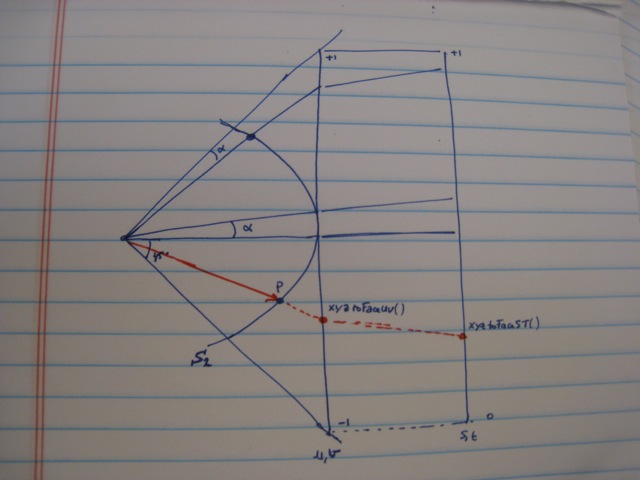 +1
+1
α
α
45°
P
xyztoFaceUV()
xyztoFaceST()
S2
-1
0
u,v
s,t